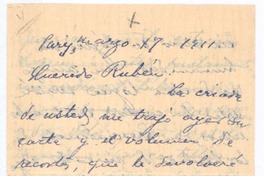 París, marzo 17 - 1911
Querido Rubén: La criada
de usted, me trajo ayer su
carta y el volumen de
recortes, que le devolveré